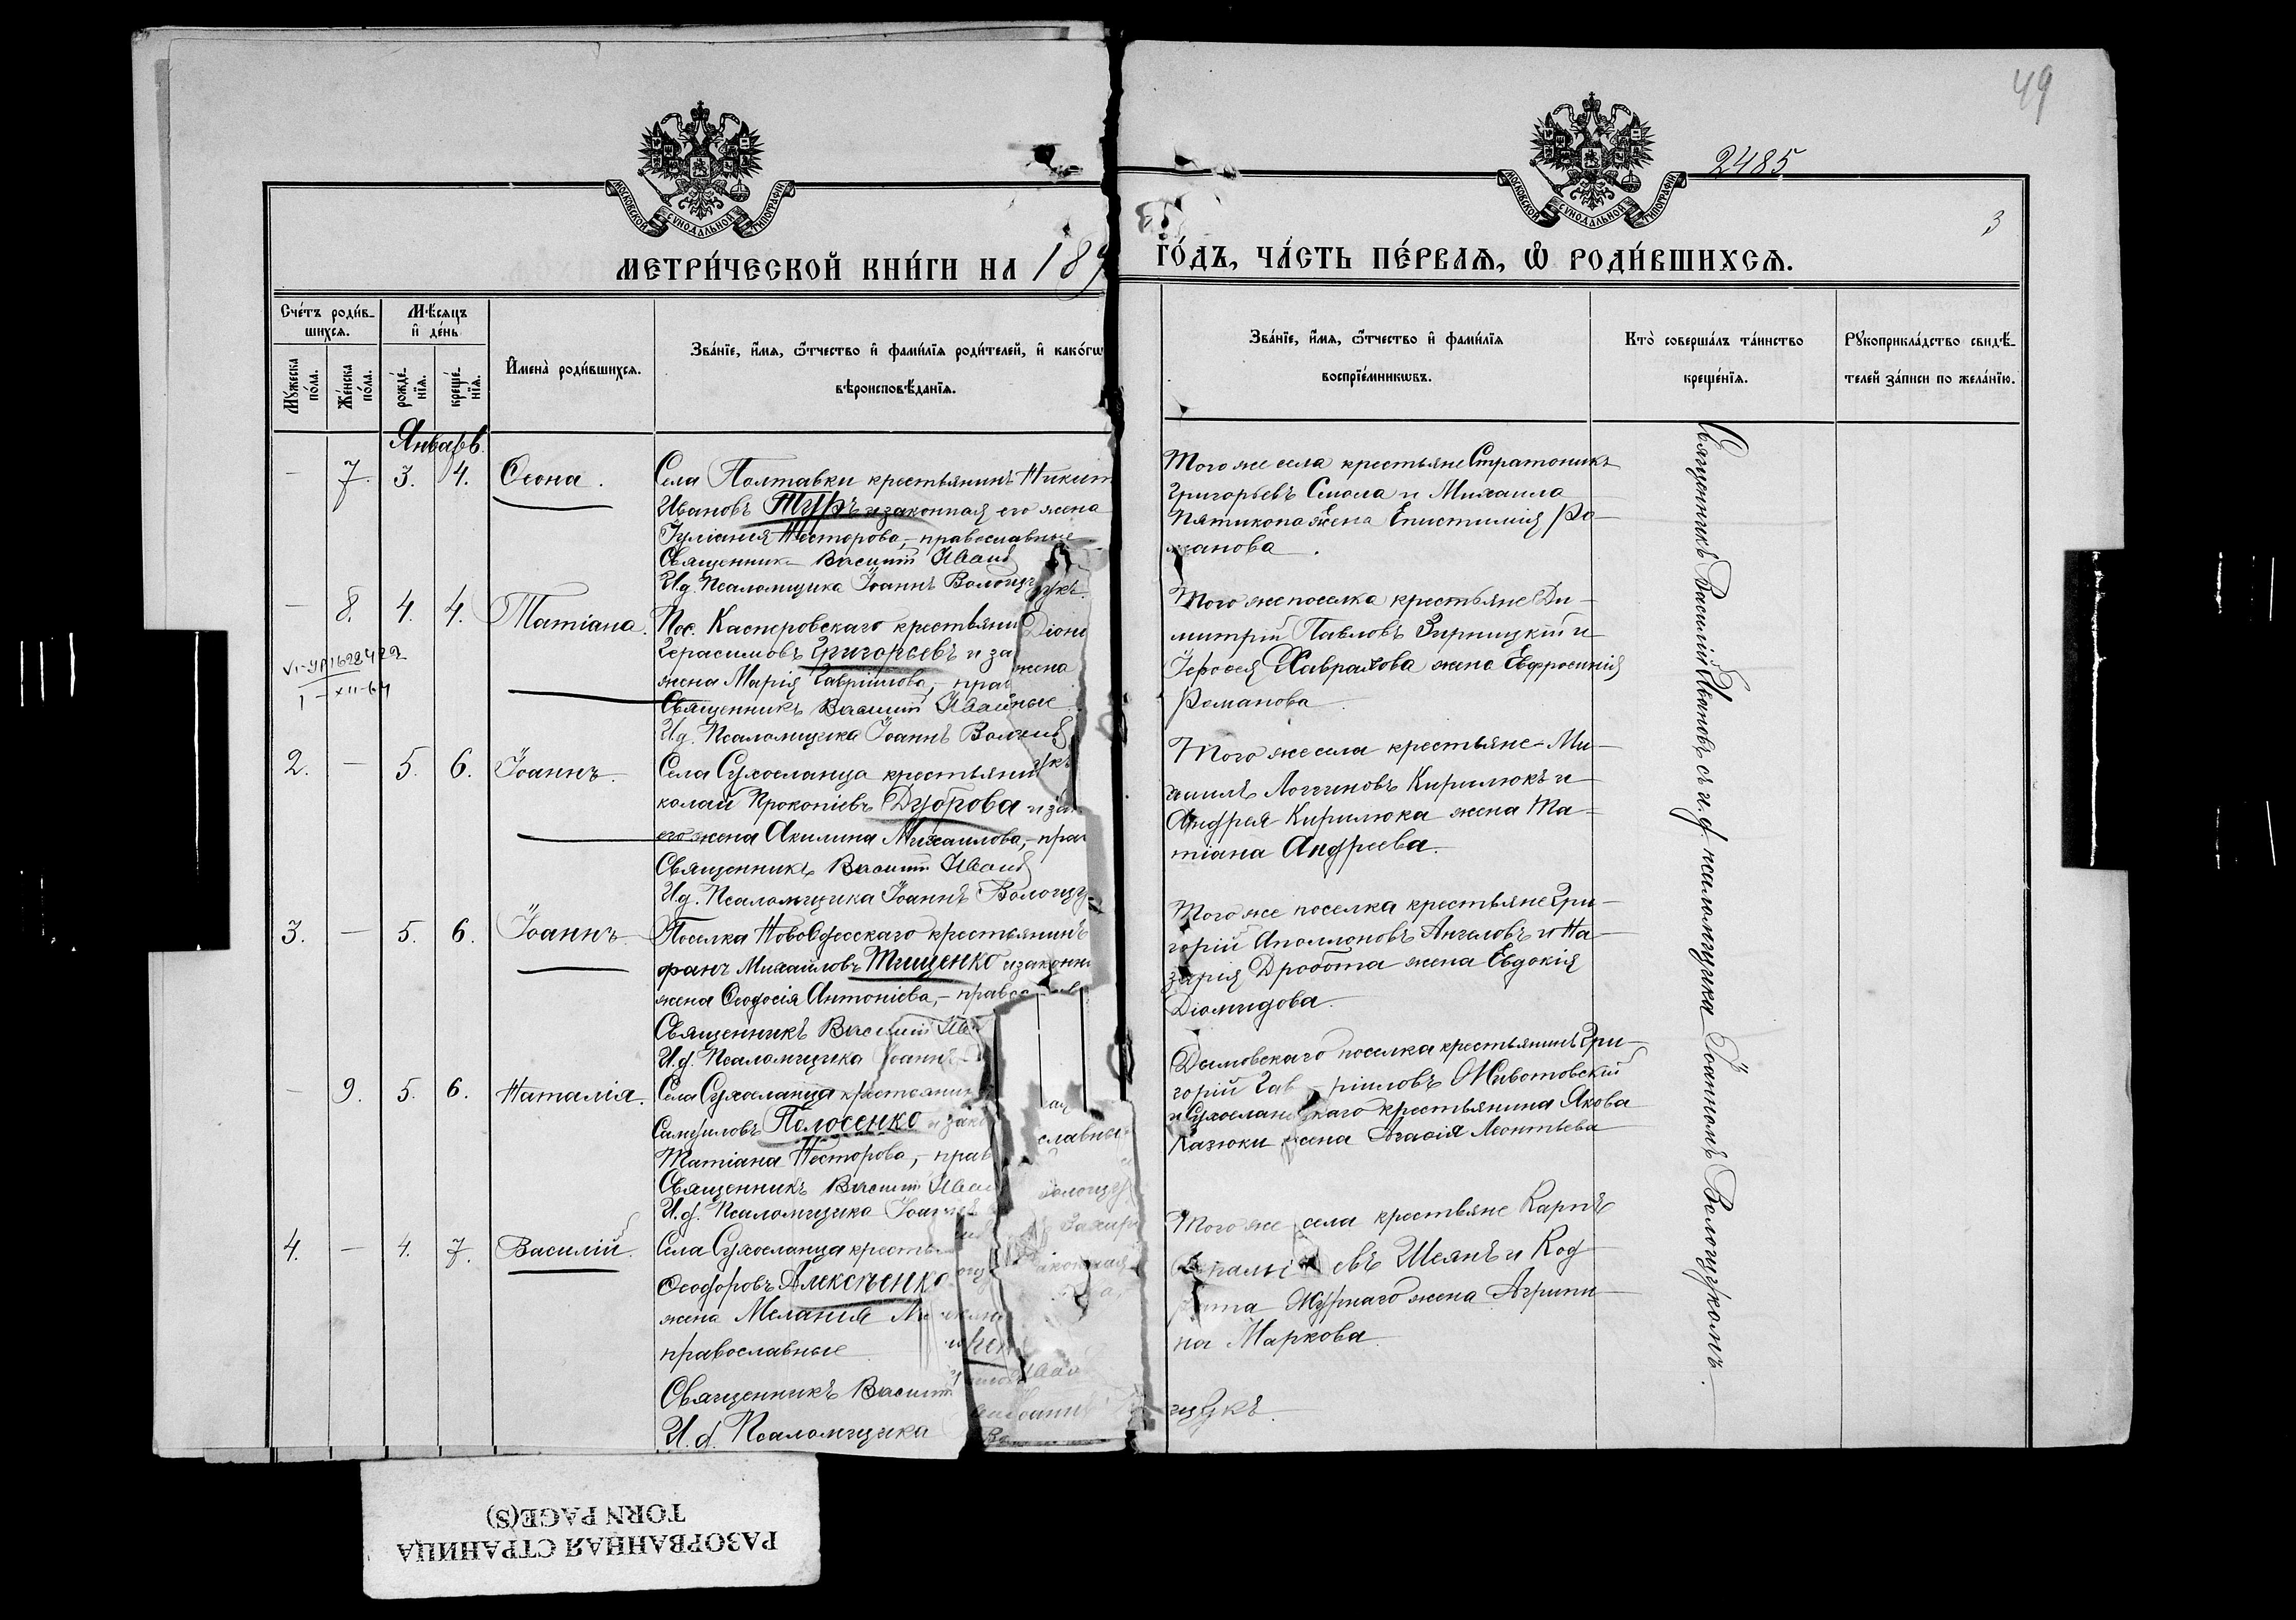 49
2485
3
МОСКОВСКОЙ СѴНОДАЛЬНОЙ ТИПОГРАФІИ
МОСКОВСКОЙ СѴНОДАЛЬНОЙ ТИПОГРАФІИ
МЕТРИ́ЧЕСКОЙ КНИ́ГИ НА 189
ГО́ДЪ, ЧА́СТЬ ПЕ́РВАѦ, Ѡ҆ РОДИ́ВШИХСѦ.
Сче́тъ роди́в-
шихсѧ.
Мꙋ́жеска по́ла.
Же́нска по́ла.
Мѣ́сѧцъ
и҆ де́нь
рожде́-нїѧ.
креще́-нїѧ.
И҆мена̀ роди́вшихсѧ.
Зва́нїе, и҆́мѧ, ѻ҆́тчество и҆ фами́лїѧ роди́телей, и҆ како́гѡ
вѣроисповѣ́данїѧ.
Зва́нїе, и҆́мѧ, ѻ҆́тчество и҆ фами́лїѧ
воспрїе́мникѡвъ.
Кто̀ соверша́лъ та́инство
креще́нїѧ.
Рꙋкоприкла́дство свидѣ́-
телей за́писи по жела́нїю.
Январь
— 7. 3. 4. Ѳеона.
Села Полтавки крестьянинъ Никит
Ивановъ Туръ и законная его жена
Іуліанія Несторова, – православные
Священникъ Василій Иванов
И.д. Псаломщика Іоаннъ Волощукъ.
Того же села крестьяне Стратоникъ
Григорьевъ Смола и Михаила
Пятикопа жена Епистимія Ро-
манова.
— 8. 4. 4. Татіана.
Пос. Касперовскаго крестьянин Діони
Герасимовъ Григорьевъ и за
жена Марія Гавріилова, – прав
Священникъ Василій Иванов
И.д. Псаломщика Іоаннъ Вол
Того же поселка крестьяне Ди-
митрій Павловъ Зирницкій и
Іерофея Хаврахова жена Евфросинія
Романова
2. — 5. 6. Іоаннъ.
Села Сухоеланца крестьянин
колай Прокопіевъ Дуброва и зак
его жена Акилина Михаилова, – прав
Священникъ Василій Иванов
И.д. Псаломщика Іоаннъ Волощу
Того же села крестьяне Ми-
хаилъ Логгиновъ Кирилюкъ и
Андрея Кирилюка жена Та-
тіана Андреева.
3. — 5. 6. Іоаннъ
Поселка Новоодесскаго крестьянинъ
фанъ Михаиловъ Тищенко и законн
жена Ѳеодосія Антоніева, – правос
Священникъ Василій Ив
И.д. Псаломщика Іоаннъ
Того же поселка крестьяне Гри-
горій Аполлоновъ Ангеловъ и На-
зарія Дробота жена Евдокія
Діомидова.
— 9. 5. 6. Наталія.
Села Сухоеланца крестьянин
Самуиловъ Полосенко и зако
Татіана Несторова, – прав славны
Священникъ Василій Иван
И.д. Псаломщика Іоаннъ Волощу
Дымовскаго поселка крестьянинъ Гри-
горій Гав-ріиловъ Животовскій
и Сухоеланецкаго крестьянина Якова
Казюки жена Агаѳія Леонтьева
4. — 4. 7. Василій.
Села Сухоеланца кресть
Ѳеодоровъ Алексѣенко
жена Меланія
православные
Священникъ Василій
И.д. Псаломщика
Того же села крестьяне Карпъ
евъ Шеянъ и Код
рата Жураго жена Агрипи-
на Маркова.
щукъ.
Священникъ Василій Ивановъ съ и.д. псаломщика Іоанномъ Волощукомъ.
РАЗОРВАННАЯ СТРАНИЦА
TORN PAGE(S)